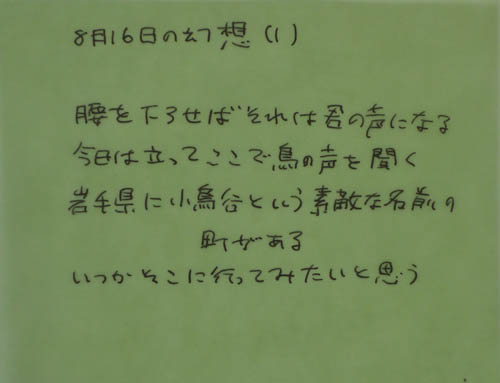 8月16日の幻想(1)
腰を下ろせばそれは君の声になる
今日は立ってここで鳥の声を聞く
岩手県に小鳥谷という素敵な名前の
町がある
いつかそこに行ってみたいと思う